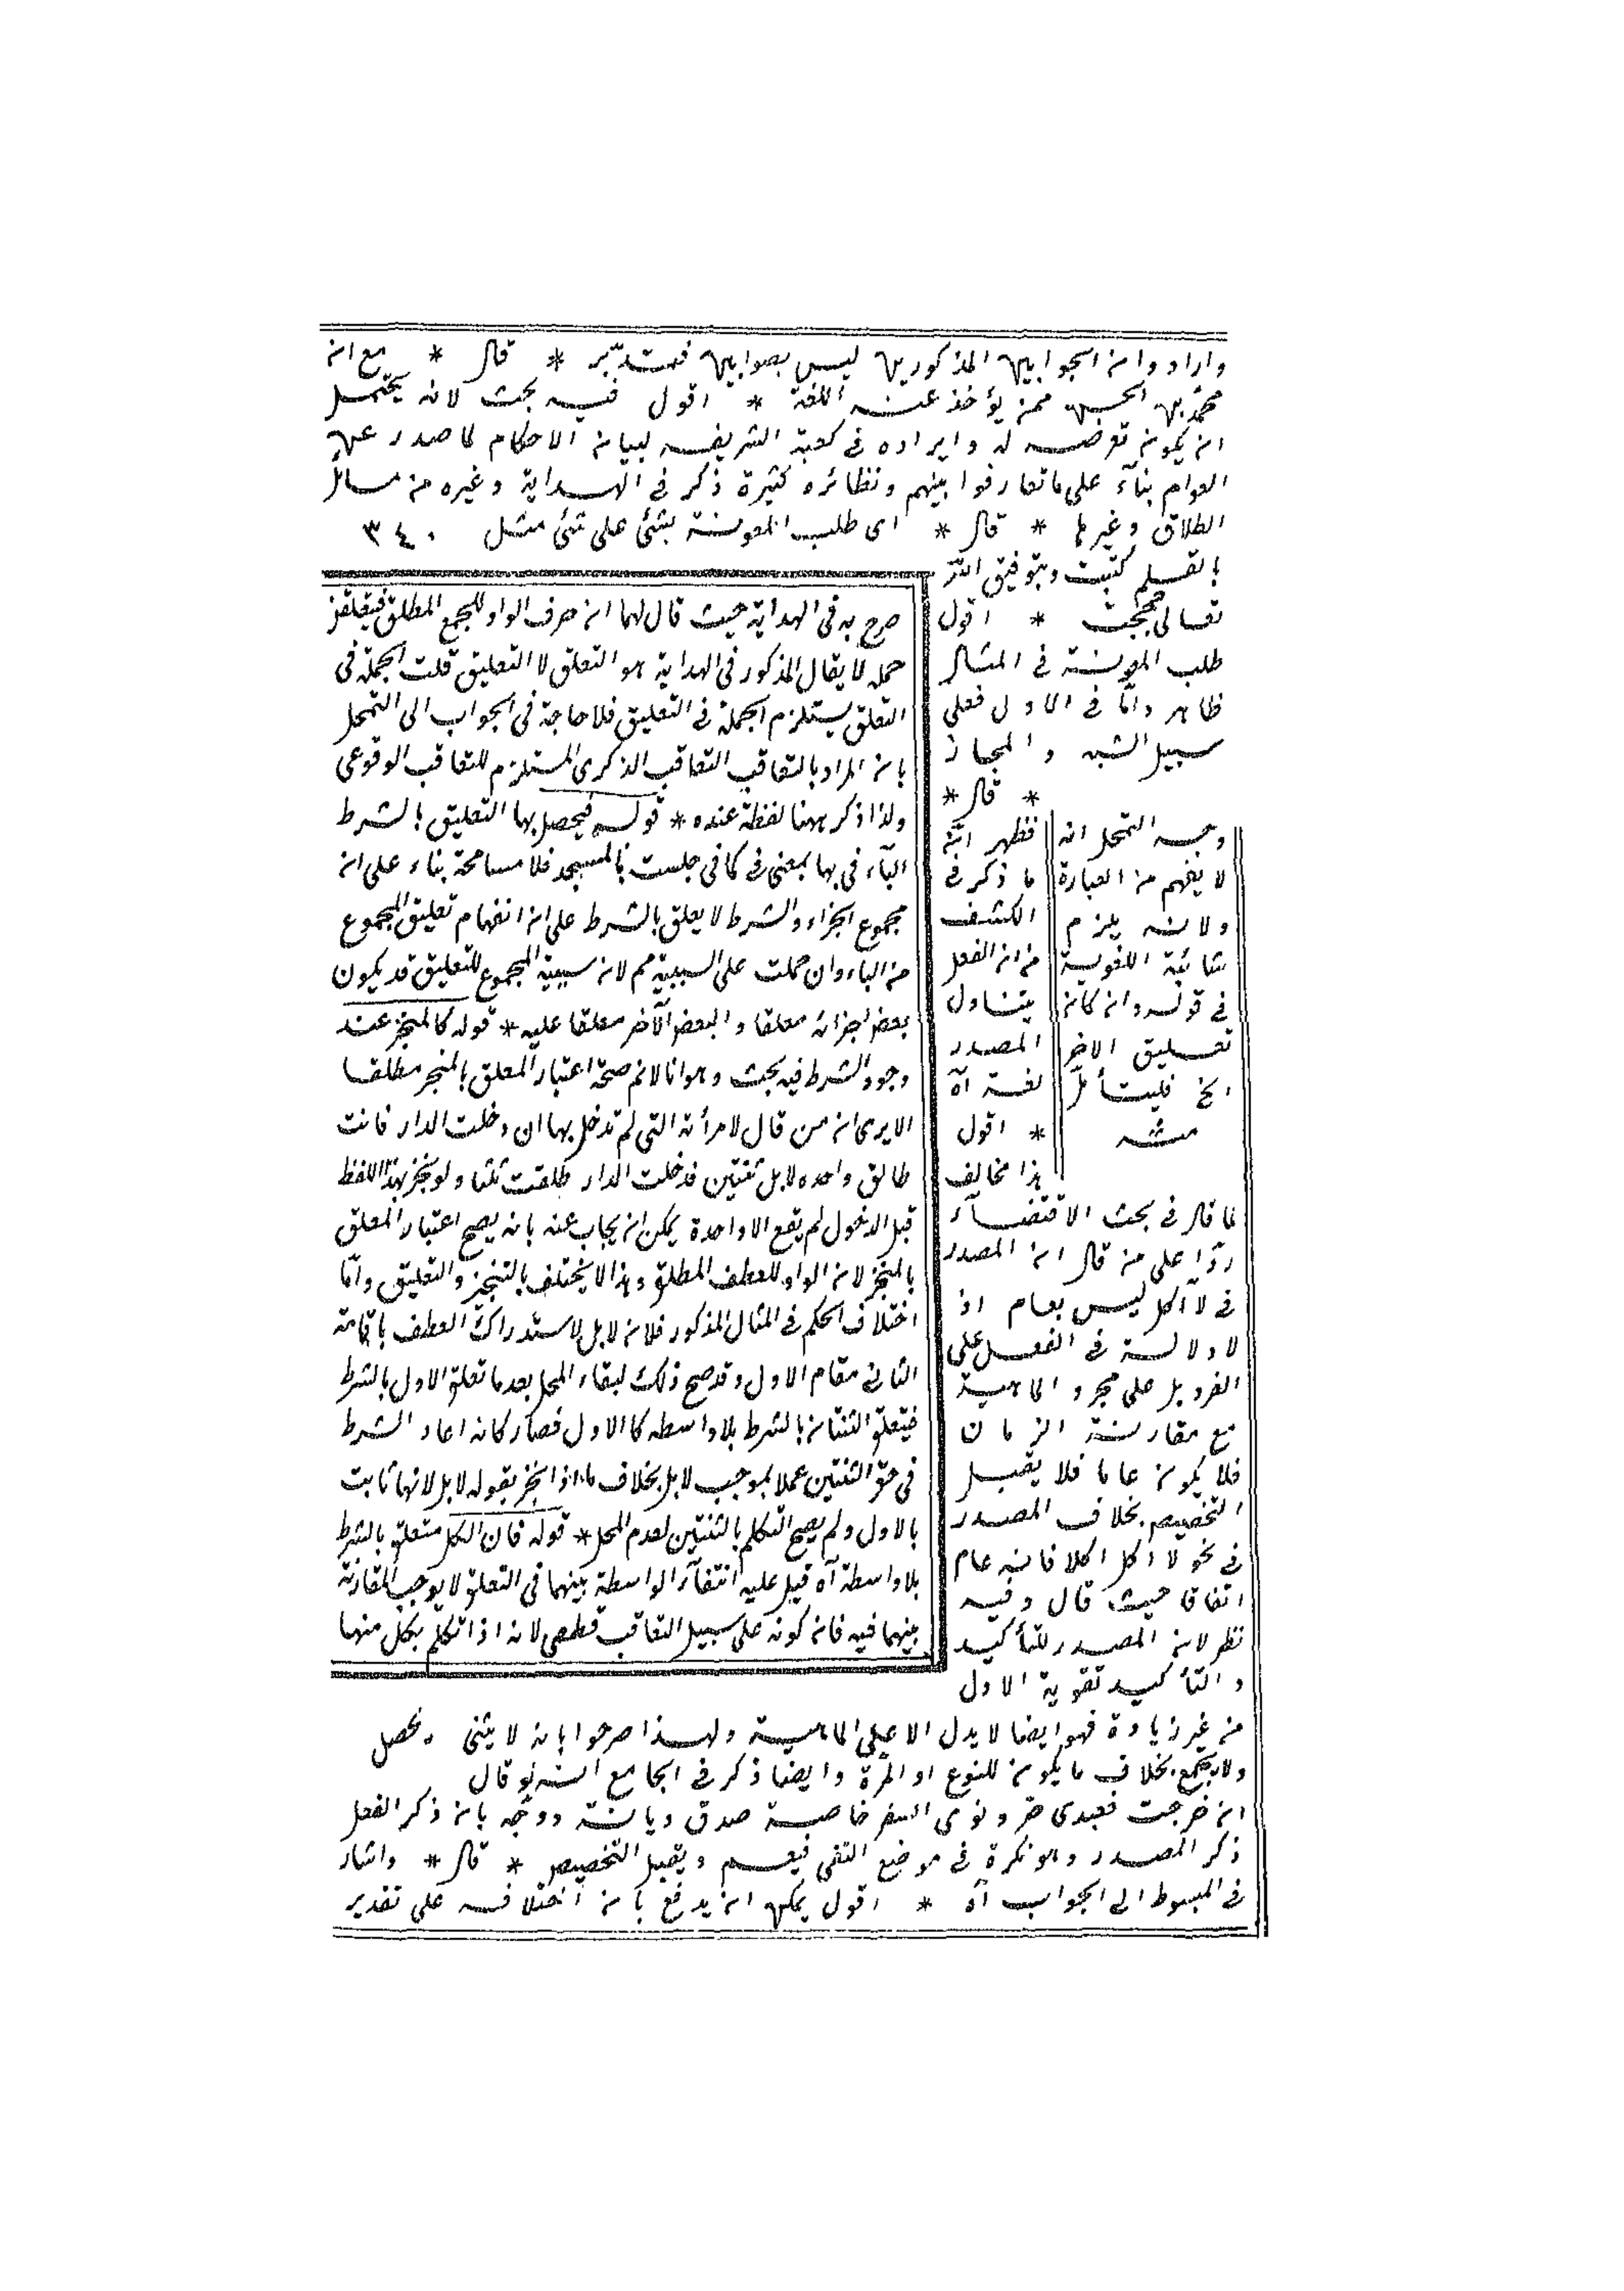 واراد وان الجوابين المذكورين ليس بصوابين فتدبر * قال * مع ان
محمد بن الحسن ممن يؤخذ عنه اللغة * اقول فيه بحث لانه يحتمل
ان يكون تعرضه له وايراده فى كتبه الشريفه لبيان الاحكام لما صدر عن
العوام بناء على ما تعارفوا بينهم ونظائره كثيرة ذكر فى الهداية وغيره من مسائل
الطلاق وغيرها * قال * اى طلب المعونة بشئ على شئ مثل ٣٤٠
بالقلم كتبت وبتوفيق الله
تعالى حججت * اقول
طلب المعونة فى المثال
ظاهر واما فى الاول فعلى
سبيل الشبه والمجاز
* قال *
فظهر انه
ما ذكر فى
الكشف
من ان الفعل
يتناول
المصدر
لغة آه
* اقول
هذا مخالف
لما قال فى بحث الاقتضاء
ردا على من قال ان المصدر
فى لا آكل ليس بعام اذ
لا دلالة فى الفعل على
الفرد بل على مجرد الماهية
مع مقارنة الزمان
فلا يكون عاما فلا يقبل
التخصيص بخلاف المصدر
فى نحو لا اكل اكلا فانه عام
اتفاقا حيث قال وفيه
نظر لان المصدر للتأكيد
والتأكيد تقوية الاول
من غير زيادة فهو ايضا لا يدل الا على الماهية ولهذا صرحوا بانه لا يثنى
ولا يجمع بخلاف ما يكون للنوع او المرة وايضا ذكر فى الجامع انه لو قال
ان خرجت فعبدى حر ونوى السفر خاصة صدق ديانة ووجه بان ذكر الفعل
ذكر المصدر وهو نكرة فى موضع النفى فيعم ويقبل التخصيص * قال * واشار
فى المبسوط الى الجواب آه * اقول يمكن ان يدفع بان اختلافه على تقدير
وجه التمحل انه
لا يفهم من العبارة
ولانه يلزم
شائبة اللغوية
فى قوله وان كان
تعليق الاخر
الخ فليتأمل
منه
صرح به فى الهداية حيث قال لهما ان حرف الواو للجمع المطلق
جمله لا يقال المذكور فى الهداية هو التعلق لا التعليق قلت الجملة فى
التعلق يستلزم الجملة فى التعليق فلا حاجة فى الجواب الى التمحل
بان المراد بالتعاقب التعاقب الذكرى المستلزم للتعاقب الوقوعى
ولذا ذكر ههنا لفظة عنده * قوله فيحصل بها التعليق بالشرط
الباء فى بها بمعنى فى كما فى جلست بالمسجد فلا مسامحة بناء على ان
مجموع الجزاء والشرط لا يعلق بالشرط على ان انفهام تعليق المجموع
من الباء وان حملت على السببية مم لان سببية المجموع للتعليق قد يكون
بعض اجزائه معلقا والبعض الآخر معلقا عليه * قوله كالمنجز عند
وجود الشرط فيه بحث وهو انا لا نم صحة اعتبار المعلق بالمنجز مطلقا
الا يرى ان من قال لامرأته التى لم تدخل بها ان دخلت الدار فانت
طالق واحده لا بل ثنتين فدخلت الدار طلقت ثلثا ولو نجز بهذا اللفظ
قبل الدخول لم يقع الا واحدة يمكن ان يجاب عنه بانه يصح اعتبار المعلق
بالمنجز لان الواو للعطف المطلق وهذا لا يختلف بالتنجيز والتعليق واما
اختلاف الحكم فى المثال المذكور فلان لا بل لاستدراك العطف باقامة
الثانى مقام الاول وقد صح ذلك لبقاء المحل بعد ما تعلق الاول بالشرط
فيتعلق الثنتان بالشرط بلا واسطه كالاول فصار كانه اعاد الشرط
فى حق الثنتين عملا بموجب لا بل بخلاف ما اذا نجز بقوله لا بل لانها ثابت
بالاول ولم يصح التكلم بالثنتين لعدم المحل * قوله فان الكل متعلق بالشرط
بلا واسطة آه قيل عليه انتفاء الواسطة بينهما فى التعلق لا يوجب المقارنة
بينهما فيه فان كونه على سبيل التعاقب قطعى لانه اذا تكلم بكل منها